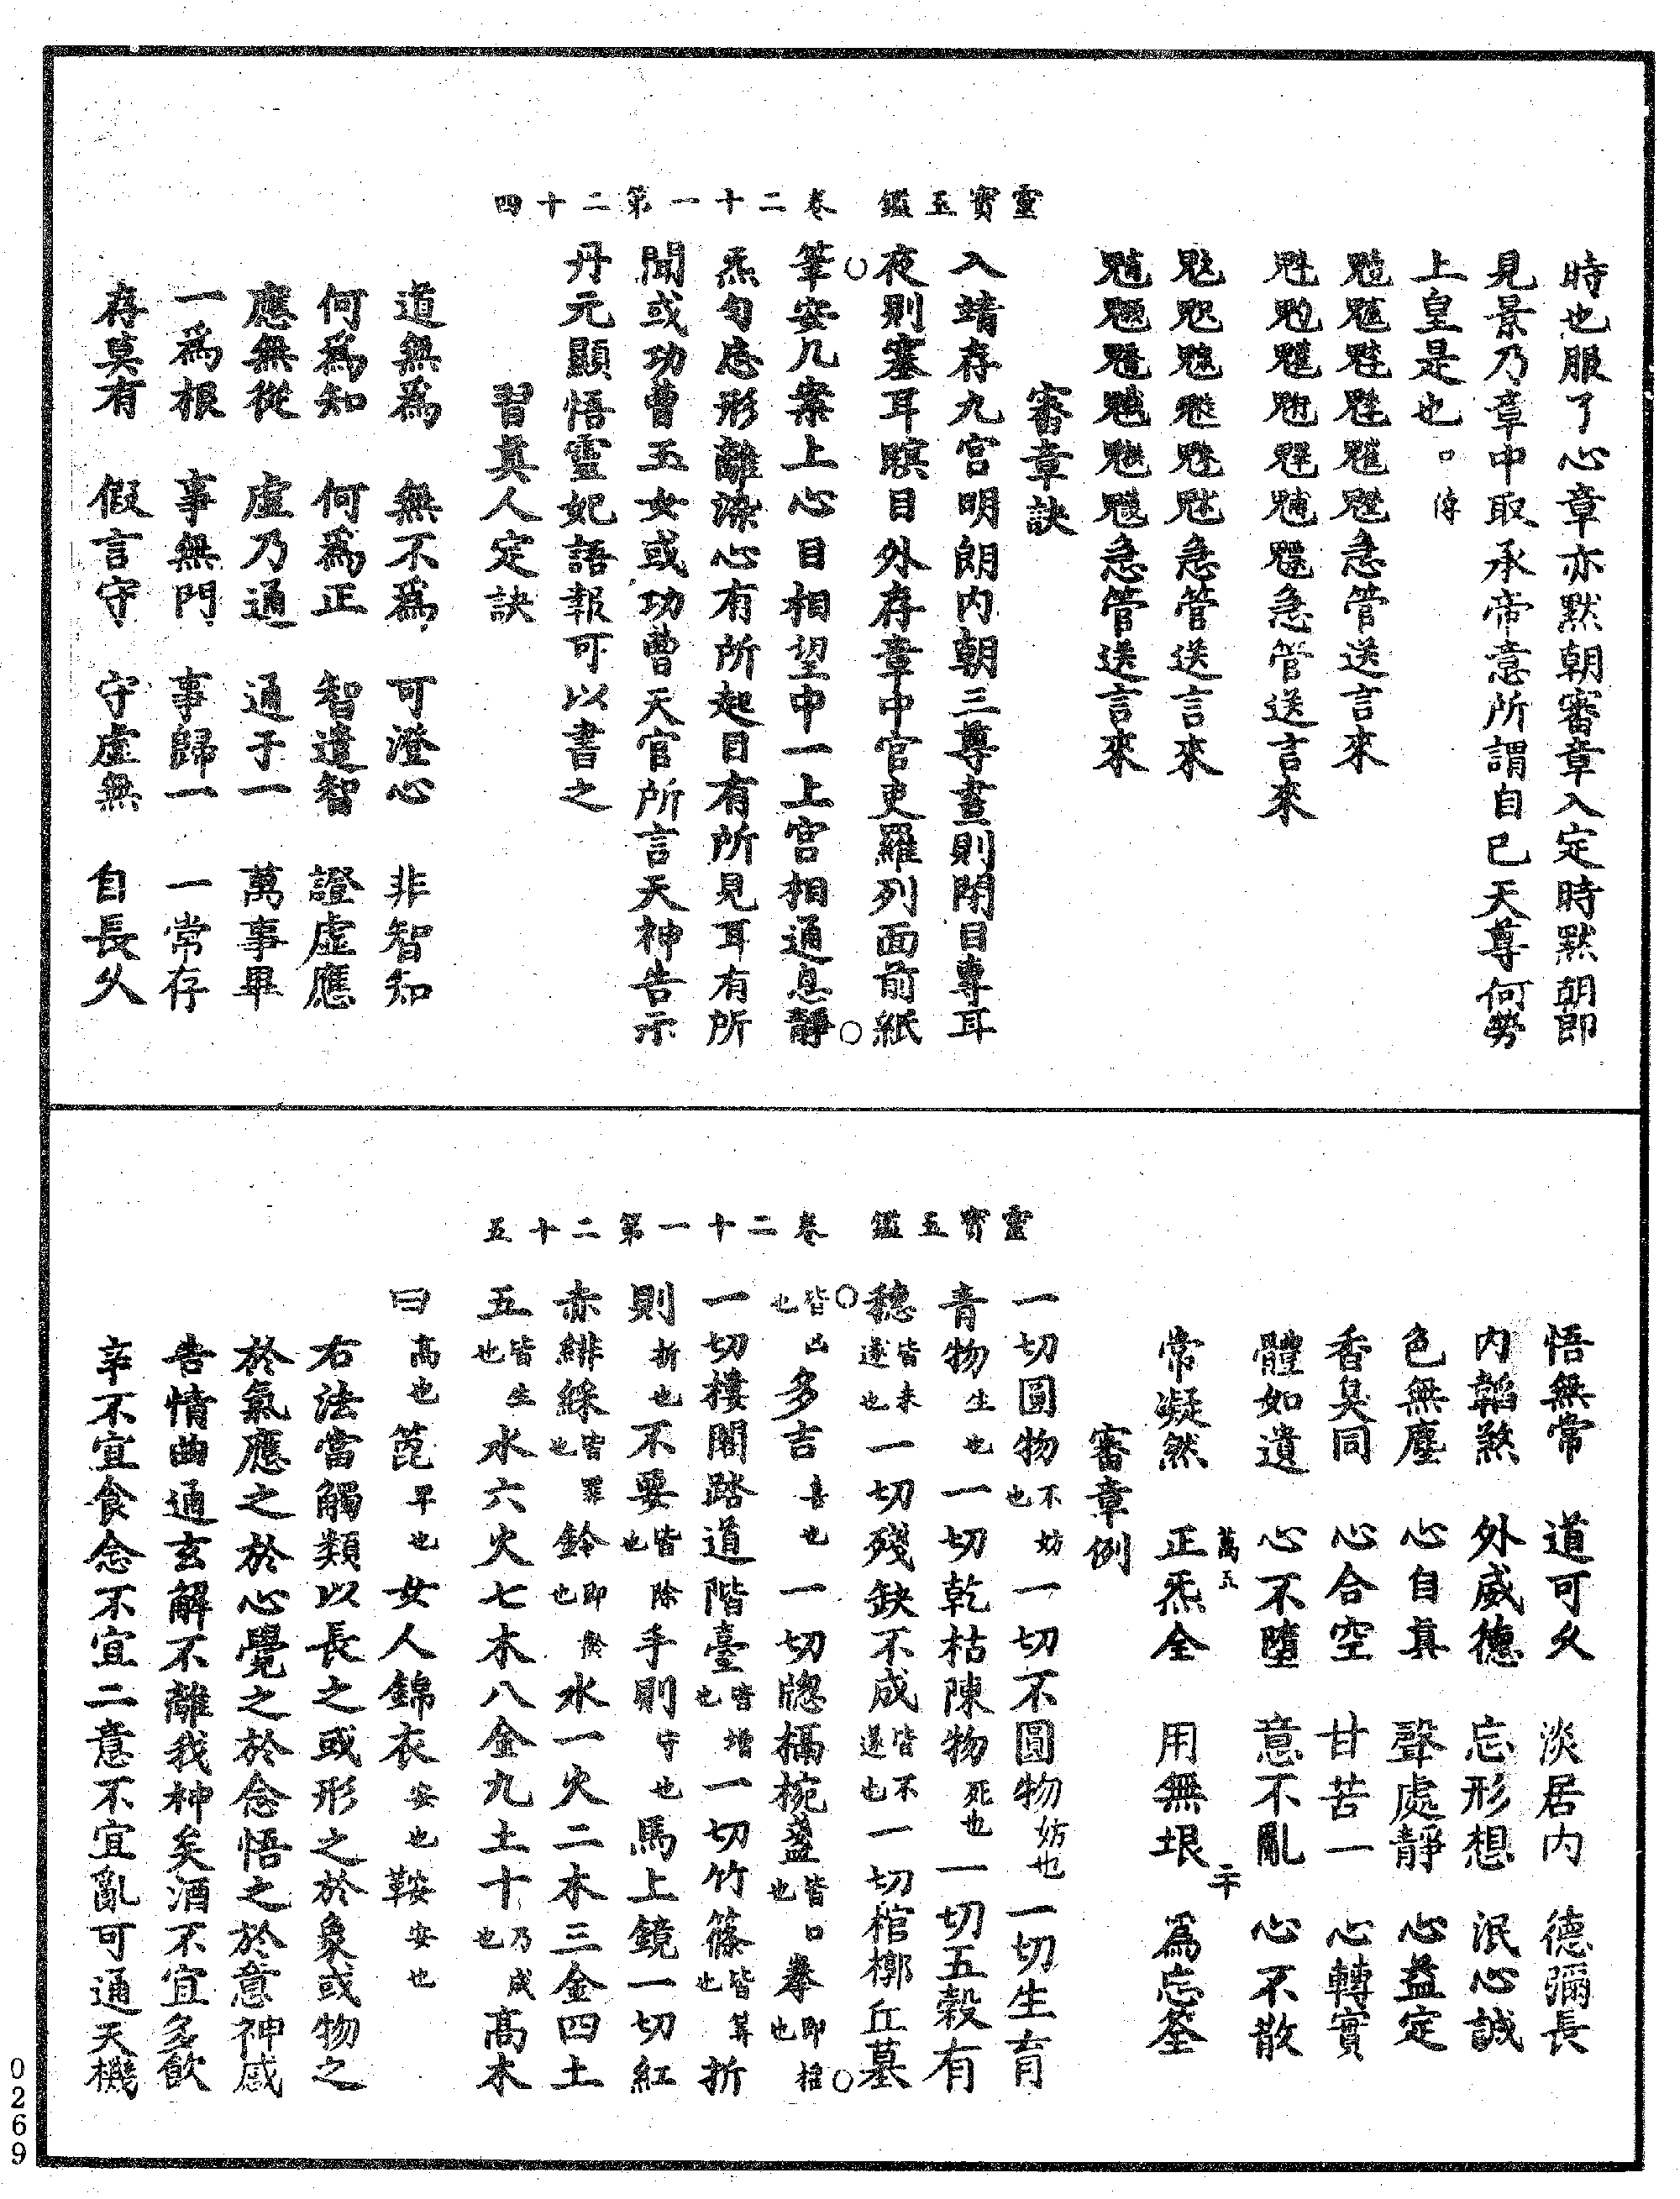 時也服了心章亦默朝審章入定時默朝即
見景乃章中取承帝意所謂自己天尊何勞
上皇是也
急管送言來
急管送言來
急管送言來
急管送言來
審章訣
入靖存九宫明朗内朝三尊晝則閉目專耳
夜則塞耳瞑目外存章中官吏羅列面前紙
筆安几案上心目相望中一上宫相通息靜
炁勻忘形離染心有所起目有所見耳有所
聞或功曹玉女或功曹天官所言天神告示
丹元顯悟靈妃語報可以書之
習真人定訣
道無爲 無不爲 可澄心 非智知
何爲知 何爲正 智遣智 證虚應
應無從 虚乃通 通于一 萬事畢
一爲根 事無門 事歸一 一常存
存莫有 假言守 守虚無 自長久
靈寳玉鑑 卷二十一第二十四
悟無常 道可久 淡居内 德彌長
内韜煞 外威德 忘形想 泯心識
色無塵 心自真 聲處靜 心益定
香臭同 心合空 甘苦一 心轉實
體如遺 心不墮 意不亂 心不散
萬五 二十
常凝然 正炁全 用無垠 爲忘筌
審章例
一切圓物不妨也一切不圓物妨也一切生育
青物生也一切乾枯陳物死也一切五穀有
穗皆未遂也一切殘缺不成皆不遂也一切棺槨丘墓
皆凶也多吉喜也一切牕槅椀盞皆口也拳即權也
一切樓閣踏道階臺皆增也一切竹篠皆筭也折
則折也不要皆除也手則守也馬上鏡一切紅
赤緋綵皆罪也鈴即於也水一火二木三金四土
五皆生也水六火七木八金九土十乃成也高木
曰高也箆早也女人錦衣安也鞍安也
右法當觸類以長之或形之於象或物之
於氣應之於心覺之於念悟之於意神感
告情曲通玄解不離我神矣酒不宜多飲
辛不宜食念不宜二意不宜亂可通天機
靈寳玉鑑 卷二十一第二十五
0269